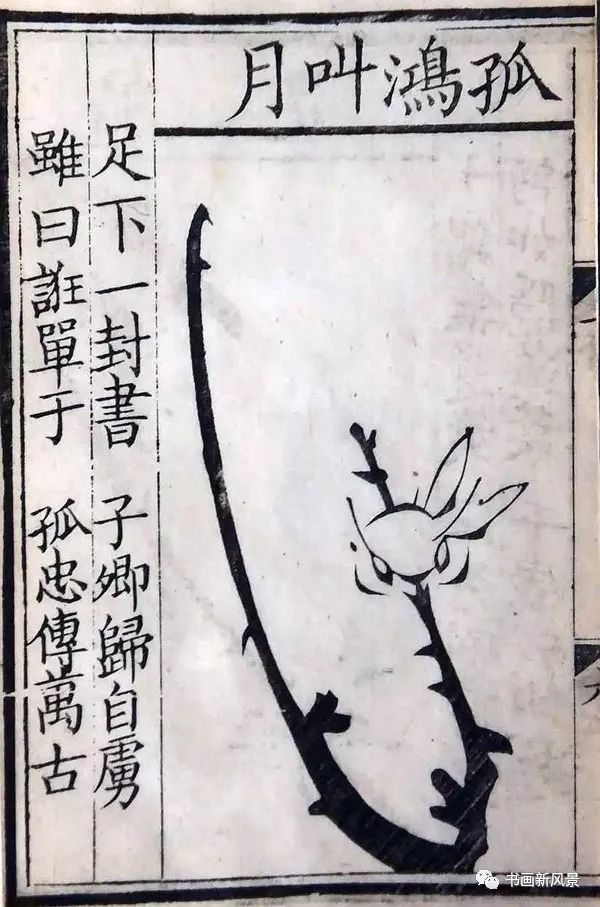 孤鴻叫月
足下一封書 子卿歸自虜
雖曰誑單于 孤忠傳萬古
书画新风景